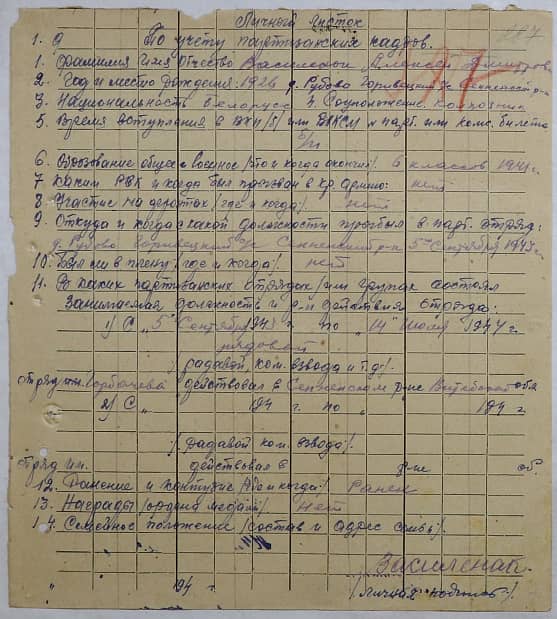 Личный листок
1. О По учёту партизанских кадров.
1. Фамилия Имя Отчество Василенок Алексей
2. Год и место рождения: 1924 д. Рубово
3. Национальность Беларус 4. Соцположение Колхозник
5. Время вступления в ВКП/б/ или ВЛКСМ № парт. или комс. билета
б/п
6. Образование общее и военное /что и когда окончил/. 6 классов 1941 г.
7 Каким РВК и когда был призван в кр. армию: нет
8 Участие на фронтах /где и когда/. нет
9. Откуда и когда с какой должности прибыл в парт. отряд:
д. Рубово Сенненский р-н 5го Сентября 1943 г.
10. Был ли в плену, где и когда/. нет
11. В каких партизанских отрядах /или группах состоял
Занимаемая должность и р-н действия отряда:
1/ С „5“ Сентября 1943 г по „14“ Июля 1944 г.
рядовой
/радавой, ком. взвода и т.д./.
отряд им. Горбачева действовал в Сенненском р-не Витебской обл
2/ С „ 194 г по „ 194 г
/. радавой ком. взвода/.
отряд им. действовал в р-не об.
12. Ранение и контузие /где и когда/. Ранен
13. Награды /ордена медали/. нет
14. Семейное положение /состав и адрес семьи/.
Василенок
„ 194 г /личная подпись/.